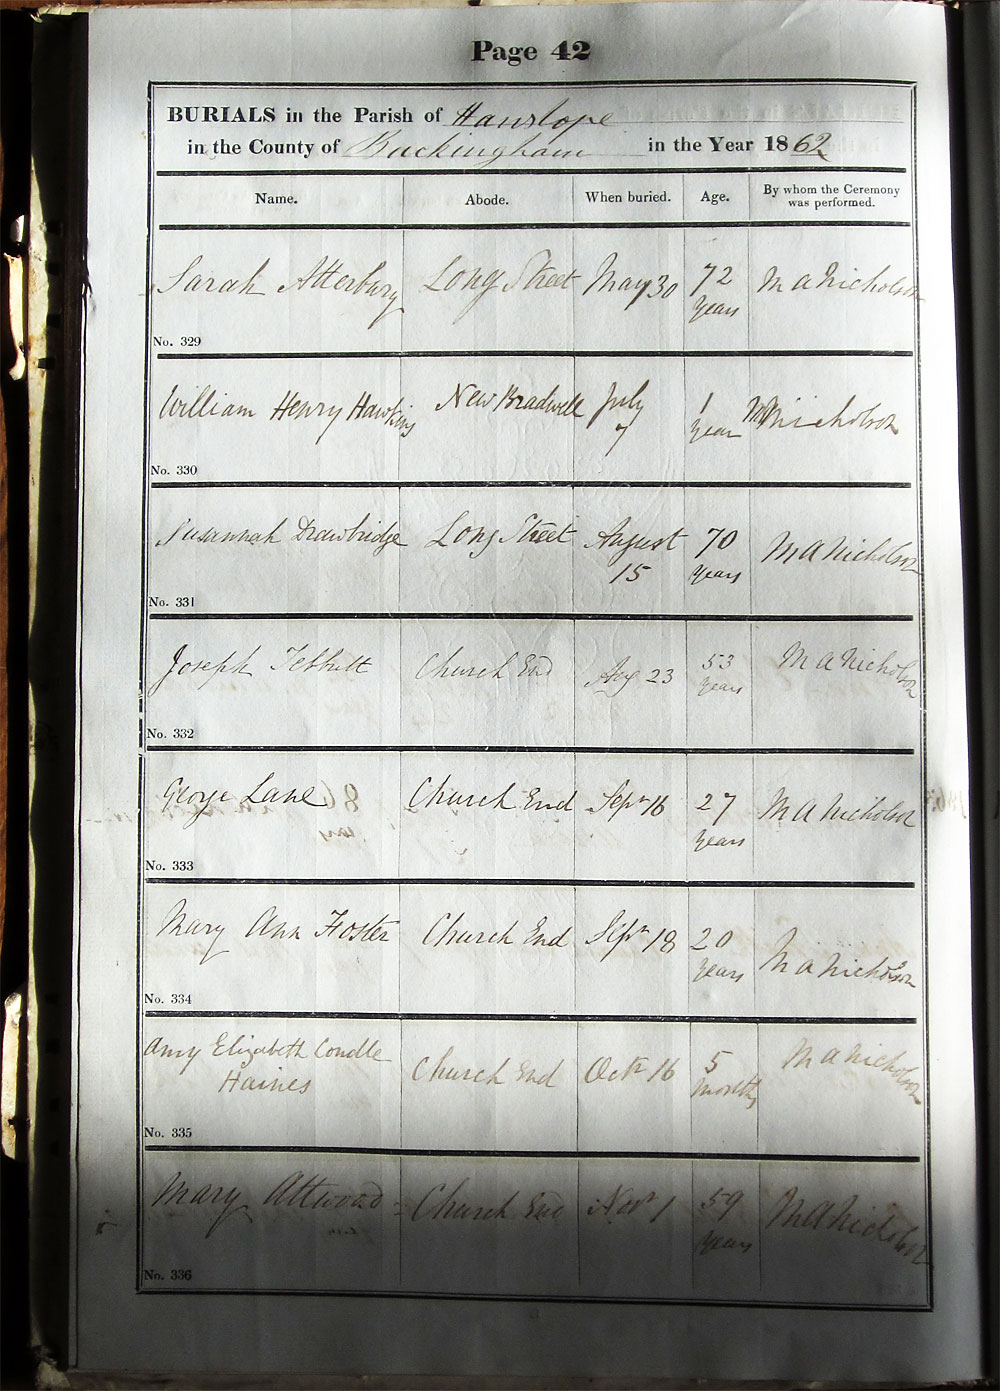 Page 42
BURIALS in the Parish of Hanslope
in the County of Buckingham in the Year 1862
Name. Abode. When buried. Age. By whom the Ceremony was performed.
Sarah Atterbury Long Street May 30 72 years M A Nicholson
No. 329
William Henry Hawkins New Bradwell July 7 1 year M A Nicholson
No. 330
Susannah Drawbridge Long Street August 15 70 years M A Nicholson
No. 331
Joseph Tebbutt Church End Aug 23 53 years M A Nicholson
No. 332
George Lane Church End Sepr 16 27 years M A Nicholson
No. 333
Mary Ann Foster Church End Sepr 18 20 years M A Nicholson
No. 334
Amy Elizabeth Condle Haines Church End Octr 16 5 months M A Nicholson
No. 335
Mary Attwood Church End Novr 1 59 years M A Nicholson
No. 336